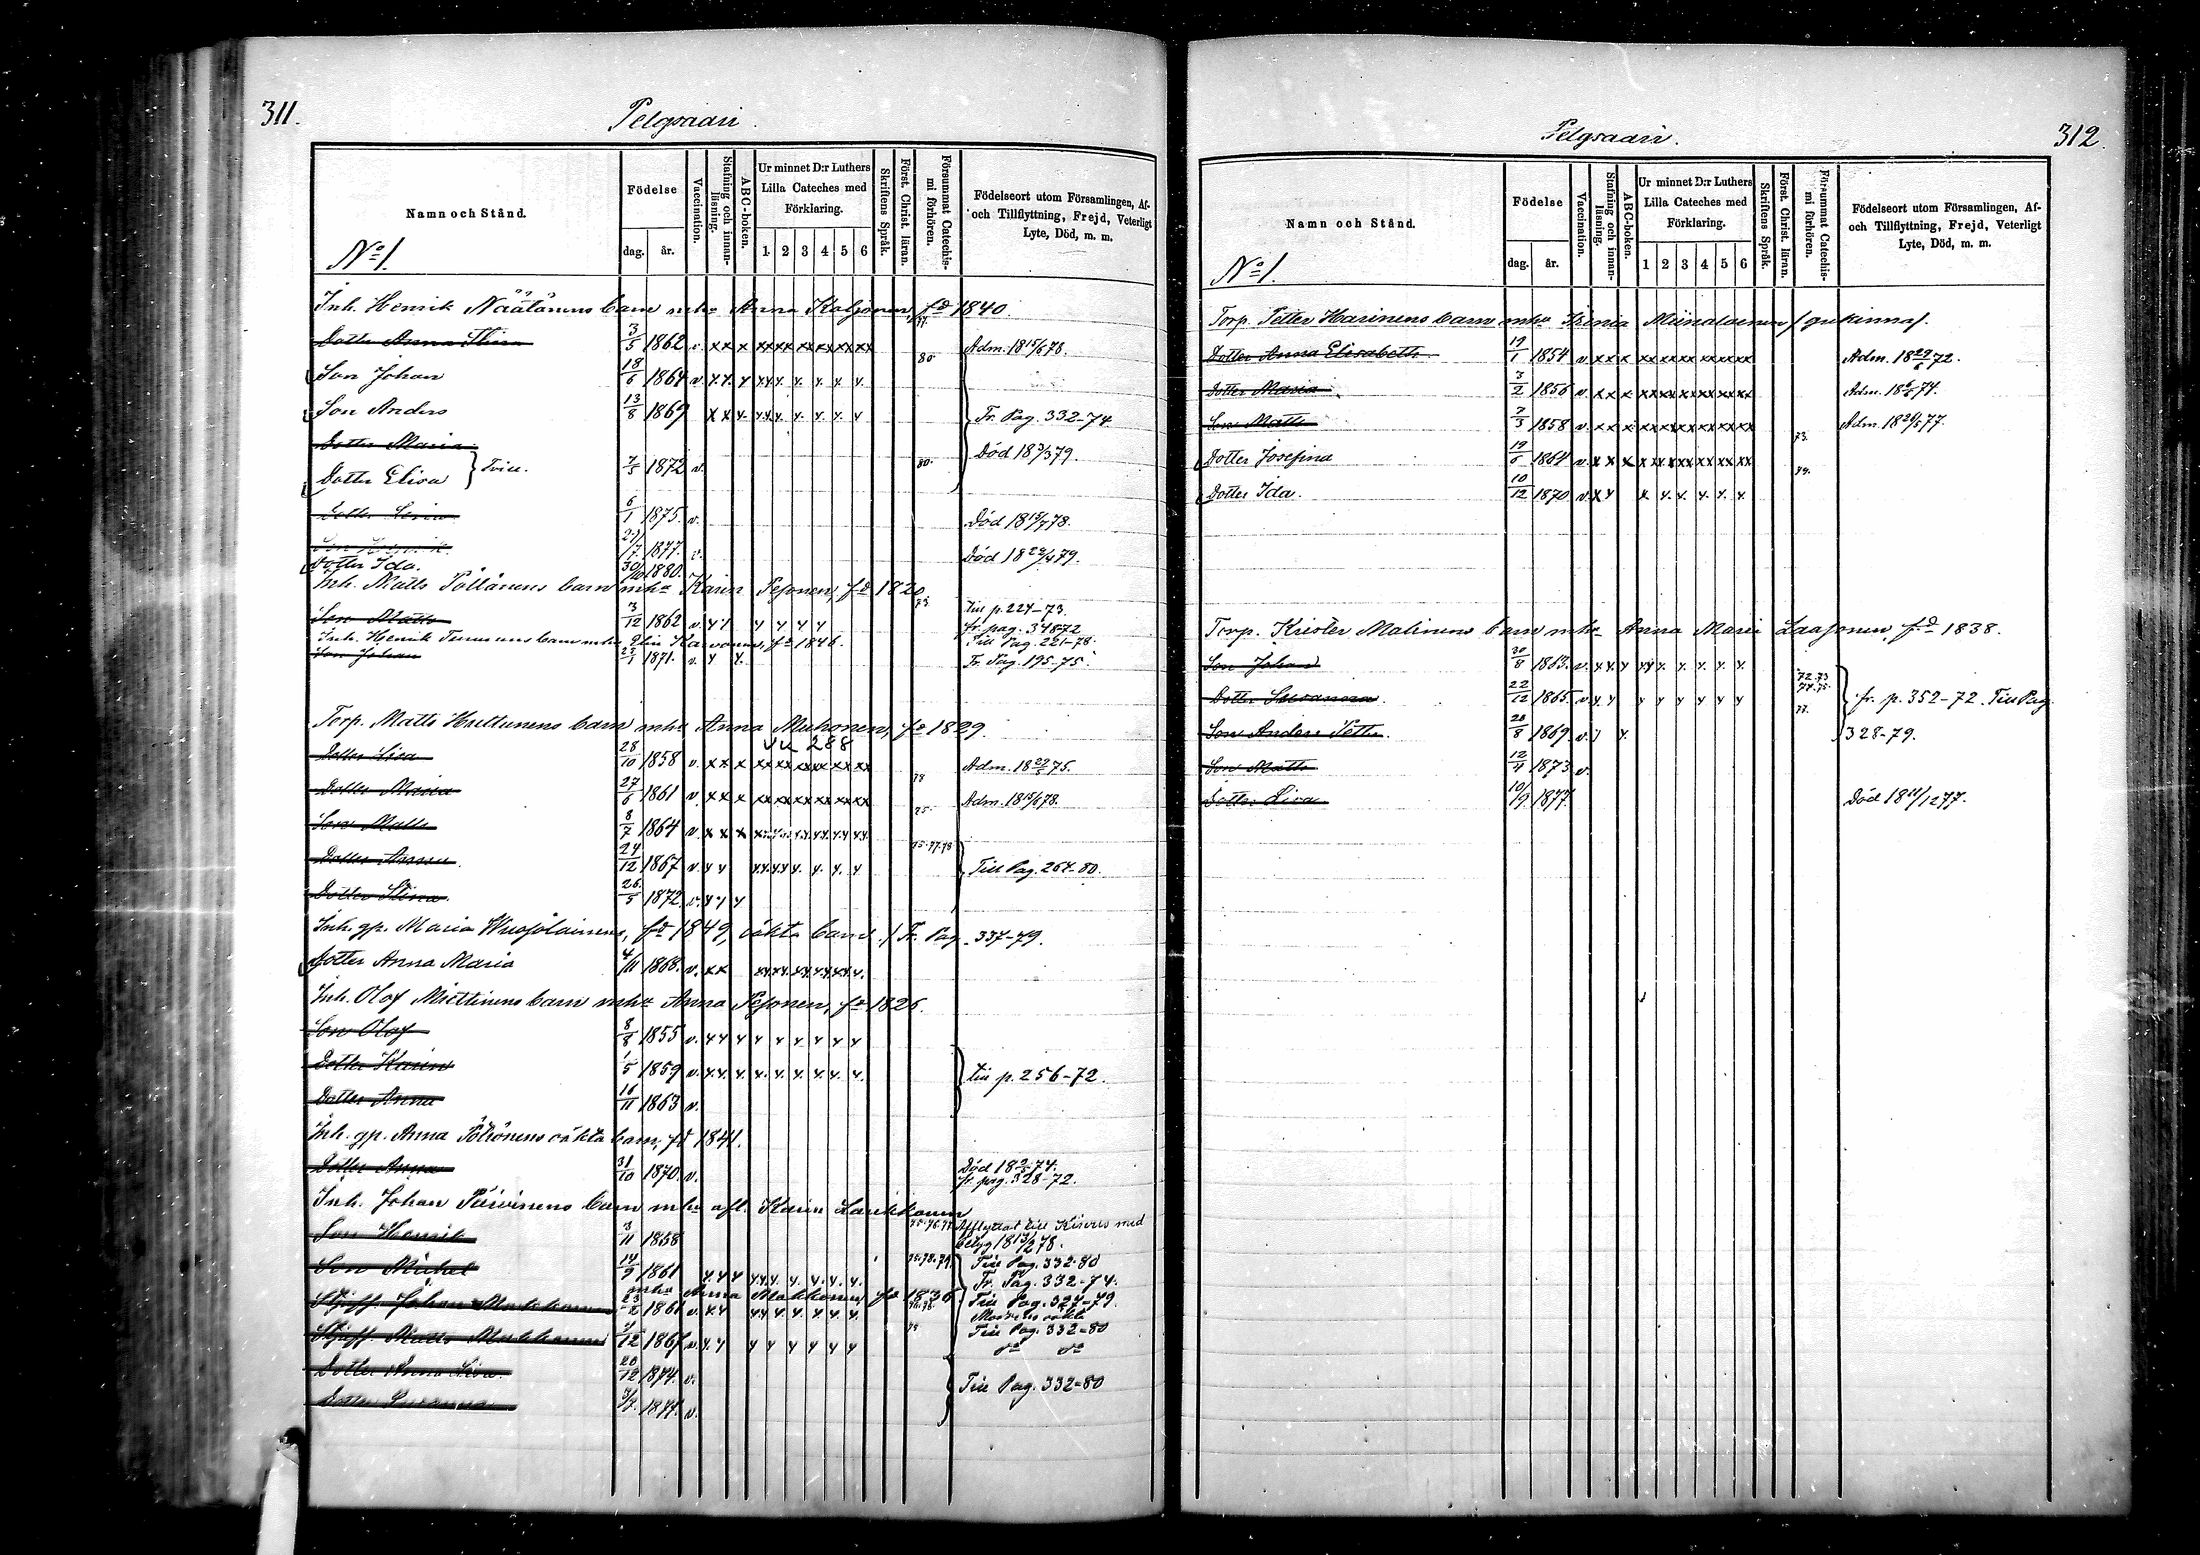 311.
Pelgsaari.
Namn och Stånd.
Födelse
dag. år.
Vaccination.
Stafning och innanläsning.
ABC-boken.
Ur minnet D:r Luthers Lilla Cateches med Förklaring.
1 2 3 4 5 6
Skriftens Språk.
Först. Christ. läran.
Försummat Catechismi förhören.
Födelseort utom Församlingen, Af- och Tillflyttning, Frejd, Veterligt Lyte, Död, m. m.
No 1.
Inh. Henrik Näätänens barn mha Anna Koljonen, fd 1840.
Dotter Anna Stina 3/5 1862 v. Adm. 18 15/6 78.
Son Johan 18/6 1864 v. 80.
Son Anders 13/8 1869 Fr. Pag. 332-74
Dotter Maria Död 18 3/3 79.
Dotter Elisa } Tvill. 7/5 1872 v. 80.
Dotter 6/1 1875. v. Död 18 15/7 78.
Son 1877. v. Död 18 29/4 79.
Dotter Ida. 30/10 1880.
Inh. Matts Pöllänens barn mha Karin Pesonen, fd 1820. 73.
Son Matts 3/12 1862 v. till p. 224-73. fr. pag. 348-72
Inh. Henrik barn mha fd 1846. Till Pag. 251-78.
Son Johan 1871. v. Fr. Pag. 195-75.
Torp. Matts Hulttunens barn mha Anna Muhonen, fd 1829.
288
Dotter Lisa 28/10 1858 v. Adm. 18 75.
Dotter Maria 27/6 1861 v. 78 Adm. 18 15/6 78.
Son Matts 8/7 1864 v. 75.
Dotter Anna 24/12 1867 v. 75.77.78 Till Pag. 264-80.
Dotter Stina 26/5 1872 v.
Inh. gp. Maria fd 1849, oäkta barn. / Fr. Pag. 337-79.
Dotter Anna Maria 4/11 1868. v.
Inh. Olof Miettinens barn mha Anna Pesonen, fd 1826.
Son Olof 8/8 1855 v.
Dotter Karin 1/5 1859 v. till p. 256-72.
Dotter Anna 16/11 1863 v.
Inh. gp. Anna Pöllönens oäkta barn, fd 1841.
Dotter Anna 31/10 1870. v. Död 18 74. fr. pag. 328-72.
Inh. Johan Päivinens barn mha afl. Karin Laukkanen
Son Henrik 3/11 1858 75.76.77 Afflyttat till med betyg 18 13/2 78.
Son Michel 14/9 1861 Till Pag. 332-80 Fr. Pag. 332-74.
mha Anna Makkonen, fd 1836
Styff. Johan Makkonen 1861 v. Till Pag. 327-79.
Styff. Matts Makkonen 1867 v. 78 Till Pag. 332-80
Dotter Anna Lisa 20/12 1874. v.
Dotter 3/7. 1877. v. Till Pag. 332-80
Pelgsaari.
312.
Namn och Stånd.
Födelse
dag. år.
Vaccination.
Stafning och innanläsning.
ABC-boken.
Ur minnet D:r Luthers Lilla Cateches med Förklaring.
1 2 3 4 5 6
Skriftens Språk.
Först. Christ. läran.
Försummat Catechismi förhören.
Födelseort utom Församlingen, Af- och Tillflyttning, Frejd, Veterligt Lyte, Död, m. m.
No 1.
Torp. Petter Harinens barn mha Xenia
Dotter Anna Elisabeth 19/1 1854 v. Adm. 18 72.
Dotter Maria 3/2 1856 v. Adm. 18 74.
Son Matts 7/3 1858 v. Adm. 18 77.
Dotter Josefina 19/6 1864 v. 73.
Dotter Ida. 10/12 1870 v. 79.
Torp. Krister Malinens barn mha Anna Maria Laasonen, fd 1838.
Son Johan 30/8 1863. v.
Dotter Susanna 22/12 1865. v. 72.73 74.75. fr. p. 352-72. Till Pag
Son Anders Petter 28/8 1869. v. 77. 328-79.
Son Matts 12/4 1873 v.
Dotter Lisa 10/9 1877. Död 18 12 77.